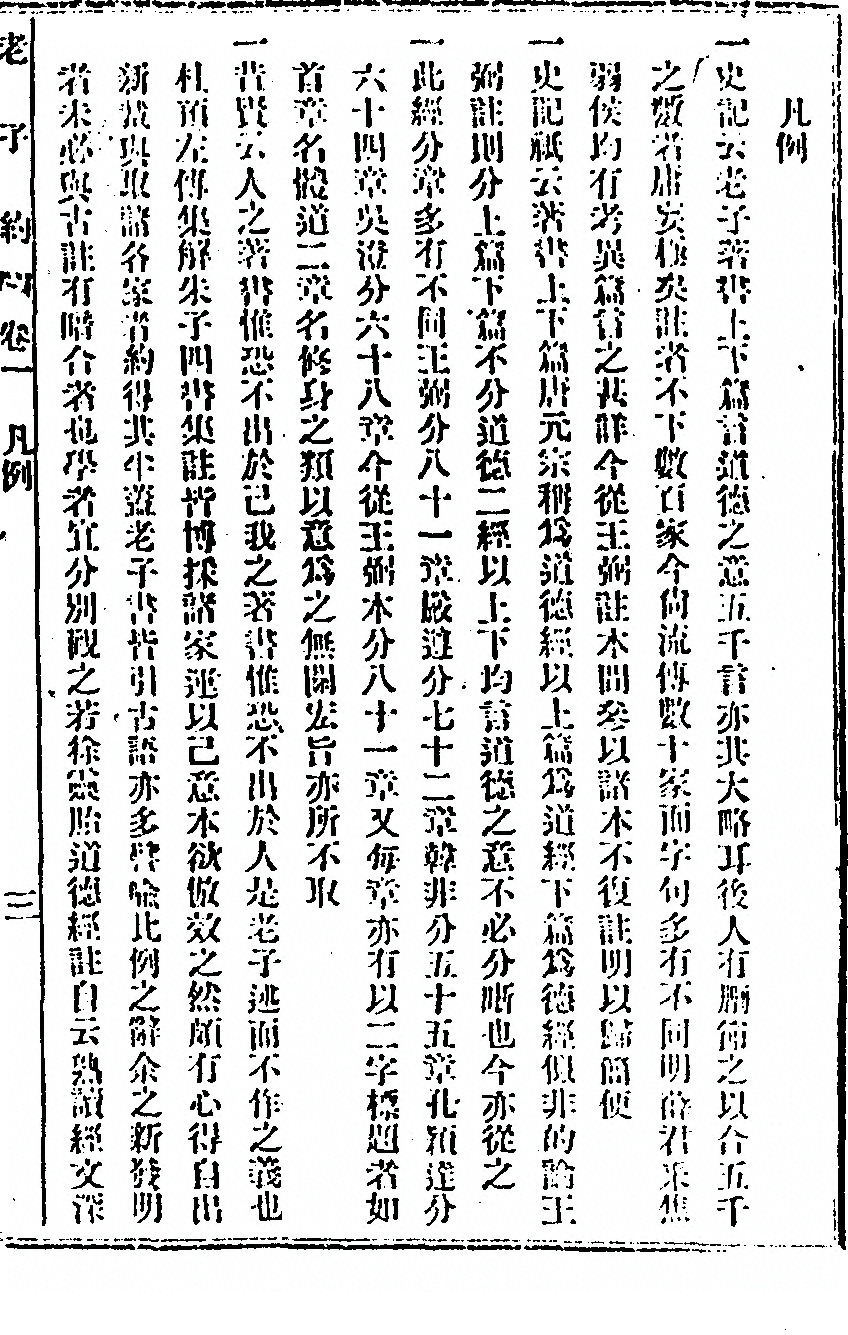 凡例
一史記云老子著書上下篇言道德之意五千言亦其大略耳後人有刪節之以合五千
之數者庸妄極矣註者不下數百家今尚流傳數十家而字句多有不同明薛君采焦
弱侯均有考異篇言之甚詳今從王弼註本間參以諸本不復註明以歸簡便
一史記祇云著書上下篇唐元宗稱為道德經以上篇為道經下篇為德經似非的論王
弼註則分上篇下篇不分道德二經以上下均言道德之意不必分晰也今亦從之
一此經分章多有不同王弼分八十一章嚴遵分七十二章韓非分五十五章孔穎達分
六十四章吳澄分六十八章今從王弼本分八十一章又每章亦有以二字標題者如
首章名體道二章名修身之類以意為之無關宏旨亦所不取
一昔賢云人之著書惟恐不出於己我之著書惟恐不出於人是老子述而不作之義也
杜預左傳集解朱子四書集註皆博採諸家運以己意本欲倣效之然頗有心得自出
新裁與取諸各家者約得其半蓋老子書皆引古語亦多譬喻比例之辭余之新發明
者未必與古註有暗合者也學者宜分別觀之若徐靈胎道德經註自云熟讀經文深
老子約卷一 凡例 三